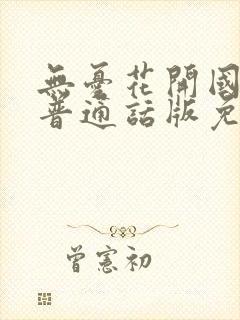 無憂花開國
普通話版免
曾憲初